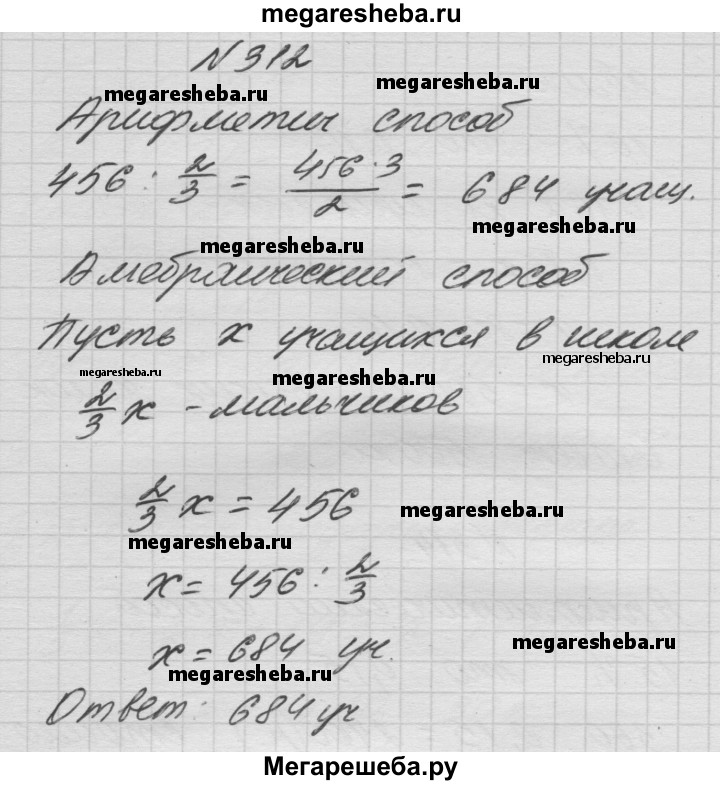 megaresheba.ru
N 312
megaresheba.ru
megaresheba.ru
Арифметич способ
456 : 2/3 = 456 · 3 / 2 = 684 учащ.
megaresheba.ru
megaresheba.ru
Алгебраический способ
Пусть x учащихся в школе
megaresheba.ru
megaresheba.ru
megaresheba.ru
2/3 x - мальчиков
2/3 x = 456
megaresheba.ru
megaresheba.ru
x = 456 : 2/3
x = 684 уч.
megaresheba.ru
megaresheba.ru
Ответ: 684 уч
Мегарешеба.ру